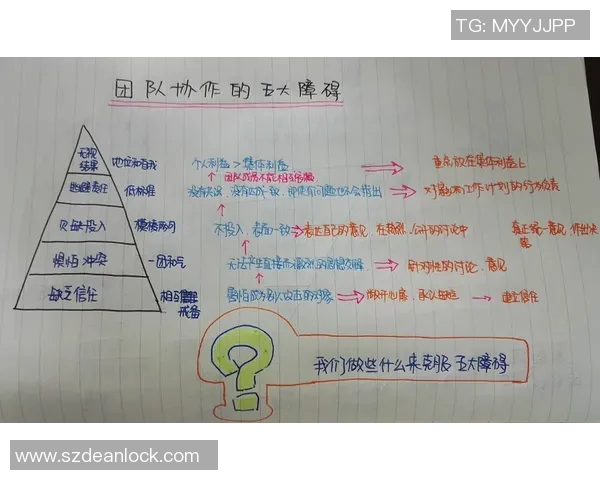 TG: MYYJJPP
团队协作的五大障碍
无视结果
地位和自我
个人利益 > 集体利益
重点放在集体利益上
团队成员不能相互
逃避责任
低标准
对影响工作计划的行为负责
欠缺投入
模棱两可
不投入，表面一致
表达自己的意见，在激烈、公开的讨论中
真正统一意见，作出决定
惧怕冲突
一团和气
无法产生直接而激烈的思想交锋
针对性的讨论、意见
缺乏信任
相互戒备
害怕成为别人攻击的对象
敞开心扉，承认缺点
建立信任
我们做些什么来克服五大障碍
www.szdeanlock.com